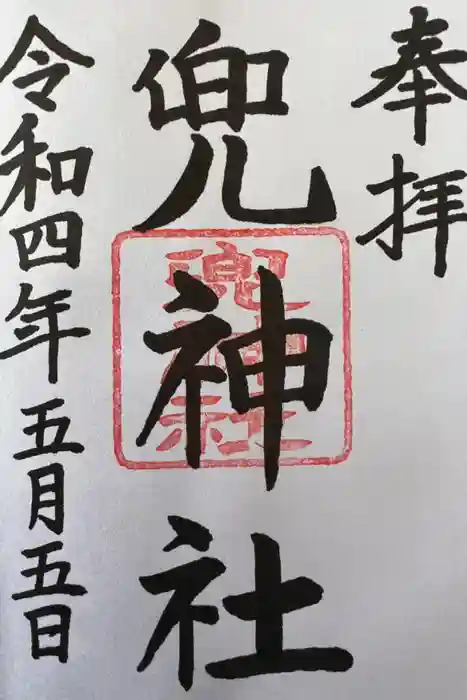 奉拝
兜神社
兜神社
令和四年五月五日